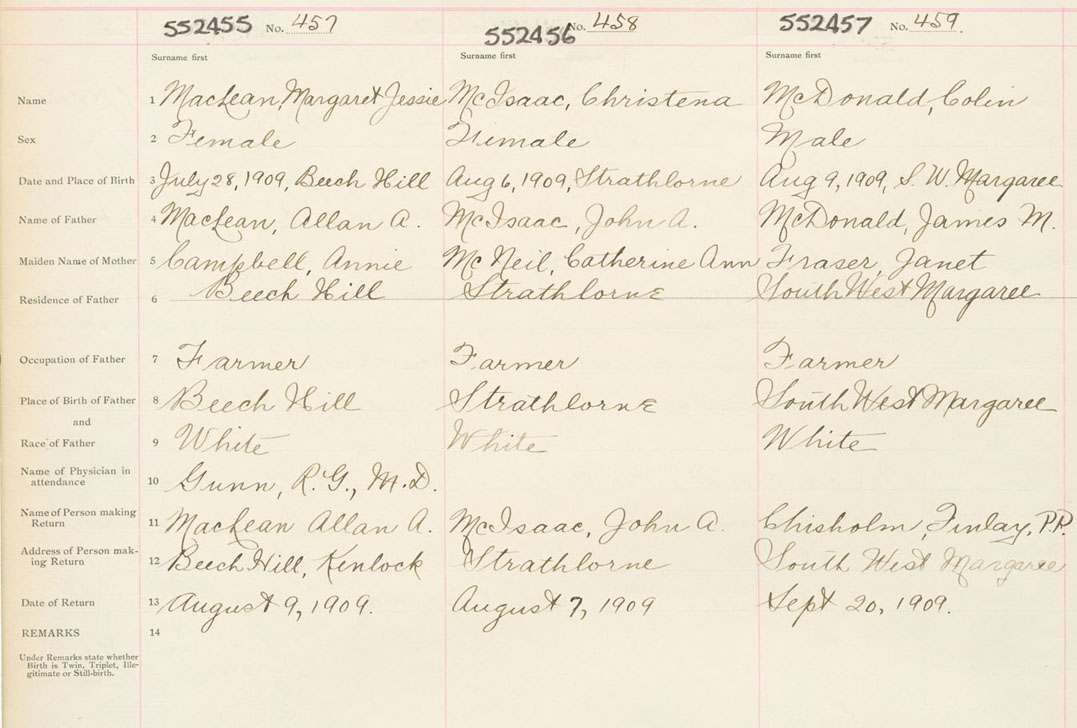 552455 No. 457 552456 No. 458 552457 No. 459
Surname first Surname first Surname first
Name 1 MacLean, Margaret Jessie McIsaac, Christena McDonald, Colin
Sex 2 Female Female Male
Date and Place of Birth 3 July 28, 1909, Beech Hill Aug 6, 1909, Strathlorne Aug 9, 1909, S. W. Margaree
Name of Father 4 MacLean, Allan A. McIsaac, John A. McDonald, James M.
Maiden Name of Mother 5 Campbell, Annie McNeil, Catherine Ann Fraser, Janet
Residence of Father 6 Beech Hill Strathlorne South West Margaree
Occupation of Father 7 Farmer Farmer Farmer
Place of Birth of Father 8 Beech Hill Strathlorne South West Margaree
and
Race of Father 9 White White White
Name of Physician in
attendance 10 Gunn, R.G., M.D.
Name of Person making
Return 11 MacLean Allan A. McIsaac, John A. Chisholm, Finlay, P.P.
Address of Person mak-
ing Return 12 Beech Hill, Kenlock Strathlorne South West Margaree
Date of Return 13 August 9, 1909. August 7, 1909 Sept 20, 1909.
REMARKS 14
Under Remarks state whether
Birth is Twin, Triplet, Ille-
gitimate or Still-birth.